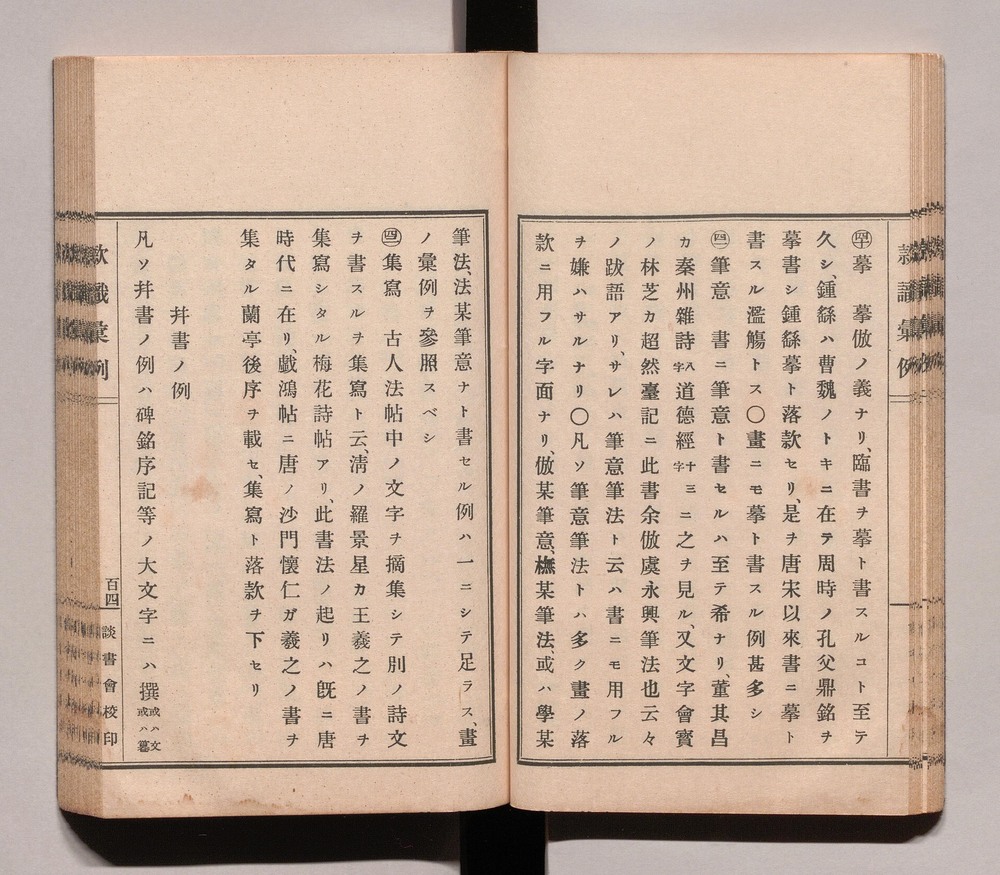 摹　摹倣ノ義ナリ、臨書ヲ摹ト書スルコト至テ
久シ、鍾繇ハ曹魏ノトキニ在テ周時ノ孔父鼎銘ヲ
摹書シ鍾繇摹ト落款セリ、是ヲ唐宋以來書ニ摹ト
書スル濫觴トス〇畫ニモ摹ト書スル例甚多シ
筆意　書ニ筆意ト書セルハ至テ希ナリ、董其昌
カ秦州雜詩八字道德經十三字ニ之ヲ見ル、又文字會寶
ノ林芝カ超然臺記ニ此書余倣虞永興筆法也云々
ノ跋語アリ、サレハ筆意筆法ト云ハ書ニモ用フル
ヲ嫌ハサルナリ〇凡ソ筆意筆法トハ多ク畫ノ落
款ニ用フル字面ナリ、倣某筆意、橅某筆法、或ハ學某
筆法、法某筆意ナト書セル例ハ一ニシテ足ラス、畫
ノ彙例ヲ參照スベシ
集寫　古人法帖中ノ文字ヲ摘集シテ別ノ詩文
ヲ書スルヲ集寫ト云、淸ノ羅景星カ王羲之ノ書ヲ
集寫シタル梅花詩帖アリ、此書法ノ起リハ既ニ唐
時代ニ在リ、戲鴻帖ニ唐ノ沙門懷仁ガ羲之ノ書ヲ
集タル蘭亭後序ヲ載セ、集寫ト落款ヲ下セリ
幷書ノ例
凡ソ幷書ノ例ハ碑銘序記等ノ大文字ニハ撰或ハ文或ハ篹
款識彙例
百四
談書會校印